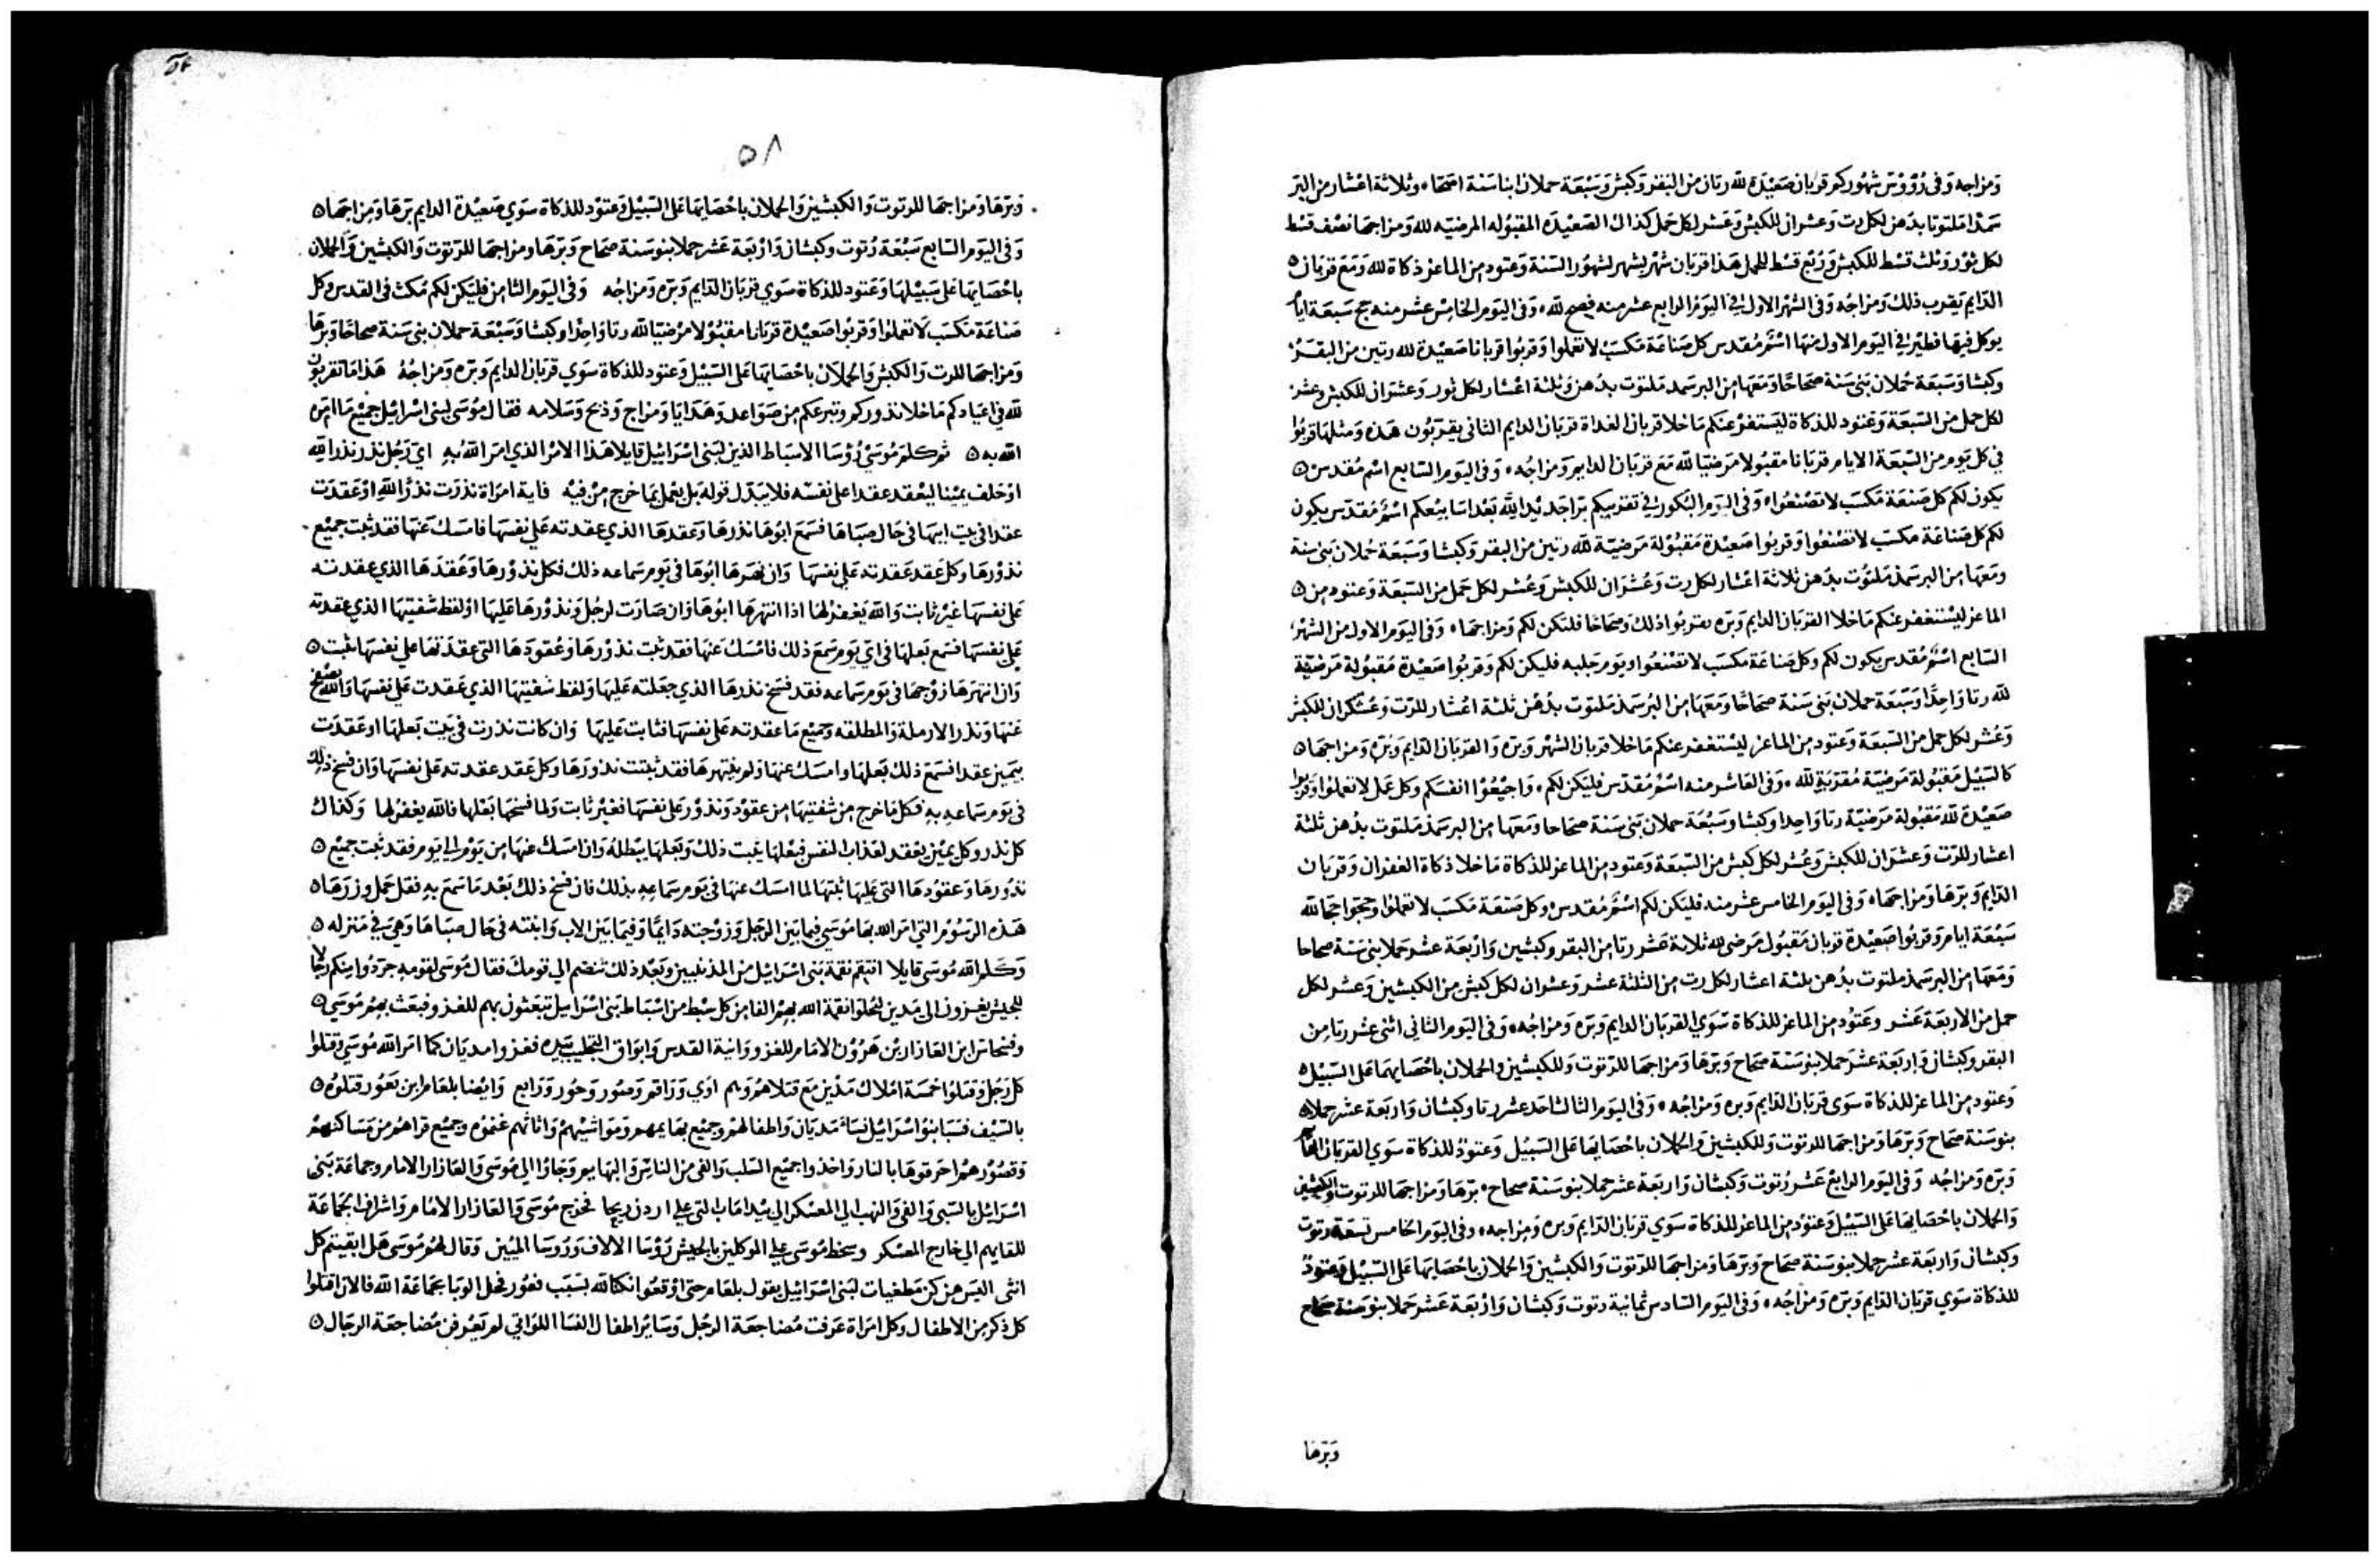 ومزاجه وفى رؤوس شهوركم قربان صعيدة لله رتان من البقر وكبش وسبعة حملان ابنا سنة اصحا وثلاثة اعشار من البر
سمذا ملتوتا بدهن لكل رت وعشران للكبش وعشر لكل حمل كذاك الصعيدة المقبوله المرضيه لله ومزاجها نصف قسط
لكل ثور وثلث قسط للكبش وربع قسط للحمل هذا قربان شهر بشهر لشهور السنة وعتود من الماعز ذكاة لله ومع قربان
الدايم يقرب ذلك ومزاجه وفى الشهر الاول في اليوم الرابع عشر منه فصح لله وفى اليوم الخامس عشر منه حج سبعة ايام
يوكل فيها فطير في اليوم الاول منها اسم مقدس كل صناعة مكسب لا تعملوا وقربوا قربانا صعيدة لله رتين من البقر
وكبشا وسبعة حملان بنى سنة صحاحا ومعها من البر سمد ملتوت بدهن وثلثة اعشار لكل ثور وعشران للكبش وعشر
لكل حمل من السبعة وعتود للذكاة ليستغفر عنكم ما خلا قربان الغداة قربان الدايم الثانى يقربون هذه ومثلها قربوا
في كل يوم من السبعة الايام قربانا مقبولا مرضيا لله مع قربان الدايم ومزاجه وفى اليوم السابع اسم مقدس
يكون لكم كل صنعة مكسب لا تصنعوا وفى اليوم البكور في تقريبكم براجديد الله بعد اسابيعكم اسم مقدس يكون
لكم كل صناعة مكسب لا تصنعوا وقربوا صعيدة مقبولة مرضية لله رتين من البقر وكبشا وسبعة حملان بنى سنة
ومعها من البر سمذ ملتوت بدهن ثلاثة اعشار لكل رت وعشران للكبش وعشر لكل حمل من السبعة وعتود من
الماعز ليستغفر عنكم ما خلا القربان الدايم وبره تقربوا ذلك وصحاحا فلتكن لكم ومزاجها وفى اليوم الاول من الشهر
السابع اسم مقدس يكون لكم وكل صناعة مكسب لا تصنعوا ويوم جلبه فليكن لكم وقربوا صعيدة مقبولة مرضية
لله رتا واحدا وسبعة حملان بنى سنة صحاحا ومعها من البر سمذ ملتوت بدهن ثلثة اعشار للرت وعشران للكبش
وعشر لكل حمل من السبعة وعتود من الماعز ليستغفر عنكم ما خلا قربان الشهر وبره والقربان الدايم وبره ومزاجها
كالسبيل مقبولة مرضية مقربة لله وفى العاشر منه اسم مقدس فليكن لكم واجيعوا انفسكم وكل عمل لا تعملوا وقربوا
صعيدة لله مقبولة مرضية رتا واحدا وكبشا وسبعة حملان بنى سنة صحاحا ومعها من البر سمذ ملتوت بدهن ثلثة
اعشار للرت وعشران للكبش وعشر لكل كبش من السبعة وعتود من الماعز للذكاة ما خلا ذكاة الغفران وقربان
الدايم وبرها ومزاجها وفى اليوم الخامس عشر منه فليكن لكم اسم مقدس وكل صنعة مكسب لا تعملوا وحجوا حجا لله
سبعة ايام وقربوا صعيدة قربان مقبول مرضى لله ثلاثة عشر رتا من البقر وكبشين واربعة عشر حملا بنى سنة صحاحا
ومعها من البر سمذ ملتوت بدهن ثلثة اعشار لكل رت من الثلثة عشر وعشران لكل كبش من الكبشين وعشر لكل
حمل من الاربعة عشر وعتود من الماعز للذكاة سوي القربان الدايم وبره ومزاجه وفى اليوم الثانى اثنى عشر رتا من
البقر وكبشان واربعة عشر حملا بنو سنة صحاح وبرها ومزاجها للرتوت وللكبشين والحملان باحصايهما على السبيل
وعتود من الماعز للذكاة سوى قربان الدايم وبره ومزاجه وفى اليوم الثالث احد عشر رتا وكبشان واربعة عشر حملا
بنو سنة صحاح وبرها ومزاجها للرتوت وللكبشين والحملان باحصايها على السبيل وعتود للذكاة سوي القربان الدايم
وبره ومزاجه وفى اليوم الرابع عشر رتوت وكبشان واربعة عشر حملا بنو سنة صحاح برها ومزاجها للرتوت والكبشين
والحملان باحصايها على السبيل وعتود من الماعز للذكاة سوي قربان الدايم وبره ومزاجه وفى اليوم الخامس تسعة رتوت
وكبشان واربعة عشر حملا بنو سنة صحاح وبرها ومزاجها للرتوت والكبشين والحملان باحصايها على السبيل وعتود
للذكاة سوي قربان الدايم وبره ومزاجه وفى اليوم السادس ثمانية رتوت وكبشان واربعة عشر حملا بنو سنة صحاح
وبرها
٥٨
وبرها ومزاجها للرتوت والكبشين والحملان باحصايها على السبيل وعتود للذكاة سوي صعيدة الدايم برها ومزاجها
وفى اليوم السابع سبعة رتوت وكبشان واربعة عشر حملا بنو سنة صحاح وبرها ومزاجها للرتوت والكبشين والحملان
باحصايها على سبيلها وعتود للذكاة سوي قربان الدايم وبره ومزاجه وفى اليوم الثامن فليكن لكم مكث فى القدس وكل
صناعة مكسب لا تعملوا وقربوا صعيدة قربانا مقبولا مرضيا لله رتا واحدا وكبشا وسبعة حملان بنى سنة صحاحا وبرها
ومزاجها للرت والكبش والحملان باحصايها على السبيل وعتود للذكاة سوي قربان الدايم وبره ومزاجه هذا ما تقربون
لله في اعيادكم ما خلا نذوركم وتبرعكم من صواعد وهدايا ومزاج وذبح وسلامه فقال موسى لبنى اسرائيل جميع ما امره
الله به ثم كلم موسي رؤسا الاسباط الذين لبنى اسرائيل قايلا هذا الامر الذي امر الله به اي رجل نذر نذرا لله
او حلف يمينا ليعقد عقدا على نفسه فلا يبدل قوله بل يعمل بما خرج من فيه فاية امراة نذرت نذرا لله او عقدت
عقدا في بيت ابيها في حال صباها فسمع ابوها نذرها وعقدها الذي عقدته على نفسها فامسك عنها فقد ثبت جميع
نذورها وكل عقد عقدته على نفسها وان نهرها ابوها في يوم سماعه ذلك فكل نذورها وعقدها الذي عقدته
على نفسها غير ثابت والله يغفر لها اذا انتهرها ابوها وان صارت لرجل ونذورها عليها او لفظ شفتيها الذي عقدته
على نفسها فسمع بعلها فى اي يوم سمع ذلك فامسك عنها فقد ثبت نذورها وعقودها التى عقدتها على نفسها ثبت
وان انتهرها زوجها فى يوم سماعه فقد فسخ نذرها الذي جعلته عليها ولفظ شفتيها الذي عقدت على نفسها والله يصفح
عنها ونذر الارملة والمطلقه وجميع ما عقدته على نفسها فثابت عليها وان كانت نذرت في بيت بعلها او عقدت
بيمين عقدا فسمع ذلك بعلها وامسك عنها ولم ينتهرها فقد ثبتت نذورها وكل عقد عقدته على نفسها وان فسخ ذلك
فى يوم سماعه به فكل ما خرج من شفتيها من عقود ونذور على نفسها فغير ثابت ولما فسخها بعلها فالله يغفر لها وكذاك
كل نذر وكل يمين يعقد لعذاب النفس فبعلها يثبت ذلك وبعلها يبطله وان امسك عنها من يوم الى يوم فقد ثبت جميع
نذورها وعقودها التى عليها ثبتها لما امسك عنها فى يوم سماعه بذلك فان فسخ ذلك بعد ما سمع به فقد حمل وزرها
هذه الرسوم التى امر الله بها موسي فيما بين الرجل وزوجته دايما وفيما بين الاب وابنته في حال صباها وهي في منزله
وكلم الله موسى قايلا انتقم نقمة بنى اسرائيل من المذنبيين وبعد ذلك تنضم الي قومك فقال موسى لقومه جردوا منكم رجالا
للجيش يغزون الى مدين ليحلوا نقمة الله بهم الفا من كل سبط من اسباط بنى اسرايل تبعثون بهم للغزو فبعث بهم موسي
وفنحاس ابن العازار بن هرون الامام للغزو وانية القدس وابواق التجليب بيده فغزوا مديان كما امر الله موسي وقتلوا
كل رجل وقتلوا خمسة املاك مدين مع قتلاهم وهم اوي وراقم وصور وحور ورابع وايضا بلعام ابن بعور قتلوه
بالسيف فسبا بنو اسرائيل نسا مديان واطفالهم وجميع بهايمهم ومواشيهم واثاثهم غنموه وجميع قراهم من مساكنهم
وقصورهم احرقوها بالنار واخذوا جميع السلب والفى من الناس والبهايم وجاوا الي موسى والعازار الامام وجماعة بنى
اسرائيل بالسبى والفى والنهب الي المعسكر الي بيدا ماب التى علي اردن ريحا فخرج موسى والعازار الامام واشراف الجماعة
للقايهم الي خارج المعسكر وسخط موسى علي الموكلين بالجيش رؤسا الالاف وروسا الميين وقال لهم موسى هل ابقيتم كل
انثى اليس هن كن مطغيات لبنى اسرائيل بقول بلعام حتى اوقعوا نكالله بسبب فعور فحل الوبا بجماعة الله فالان اقتلوا
كل ذكر من الاطفال وكل امراة عرفت مضاجعة الرجل وساير اطفال النسا اللواتى لم يعرفن مضاجعة الرجال